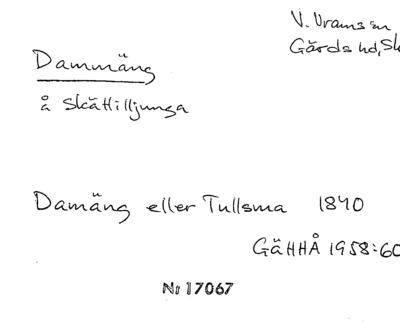 V. Vram sn
Gärds hd, Sk
Dammäng
å Skättilljunga
Damäng eller Tullsma 1840
GäHHÅ 1958:60
Nr 17067